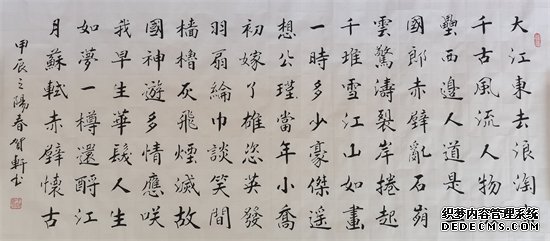 大江東去浪淘
千古風流人物
壘西邊人道是
國郎赤壁亂石崩
雲驚濤裂岸捲起
千堆雪江山如畫
一時多少豪傑遥
想公瑾當年小喬
初嫁了雄恣英發
羽扇綸巾談笑間
檣櫓灰飛煙滅故
國神遊多情應咲
我早生華髮人生
如夢一樽還酹江
月蘇軾赤壁懷古
甲辰之陽春賀軒书
织梦内容管理系统
DEDECMS.COM